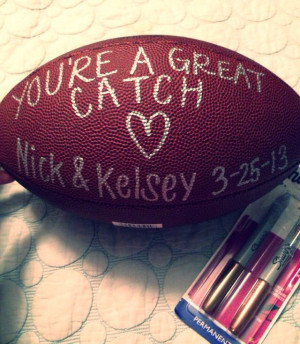 YOU'RE A GREAT
CATCH
Nick & Kelsey 3-25-13
PERMANENT